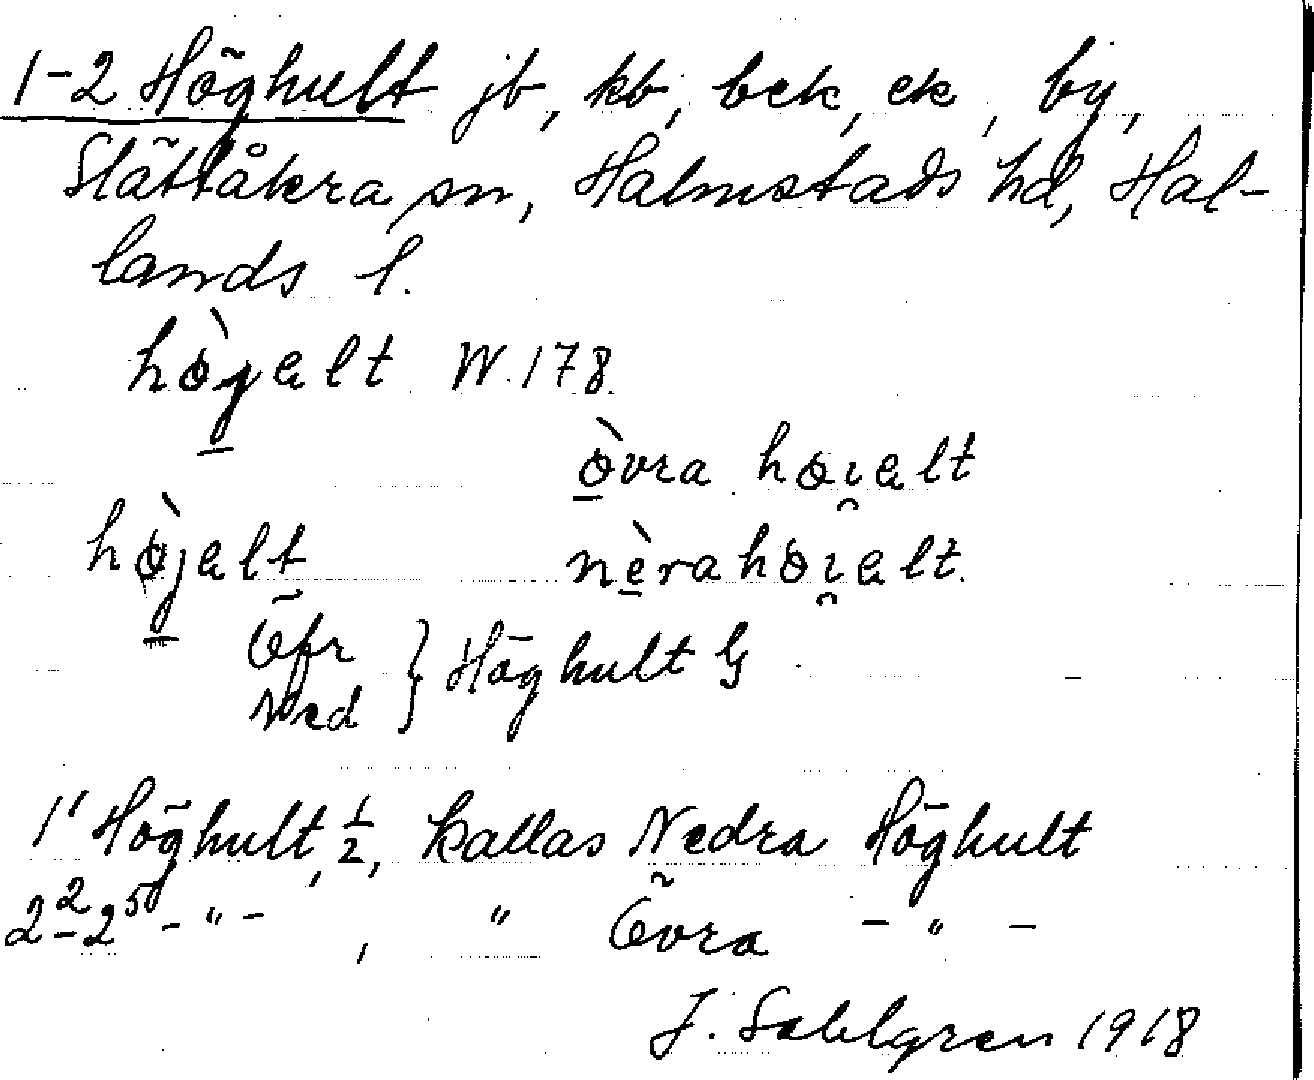 1-2 Höghult jb, kb, bek, ek, by,
Slättåkra sn, Halmstads hd, Hal-
lands l.
hò̱yalt W. 178.
ò̱vra hɵı̯alt
hò̱jalt nè̱rahɵı̯alt.
Öfr } Höghult G
Ned
1¹ Höghult, ½, kallas Nedra Höghult
2²-2⁵ - " - , " Övra - " -
J. Sahlgren 1918